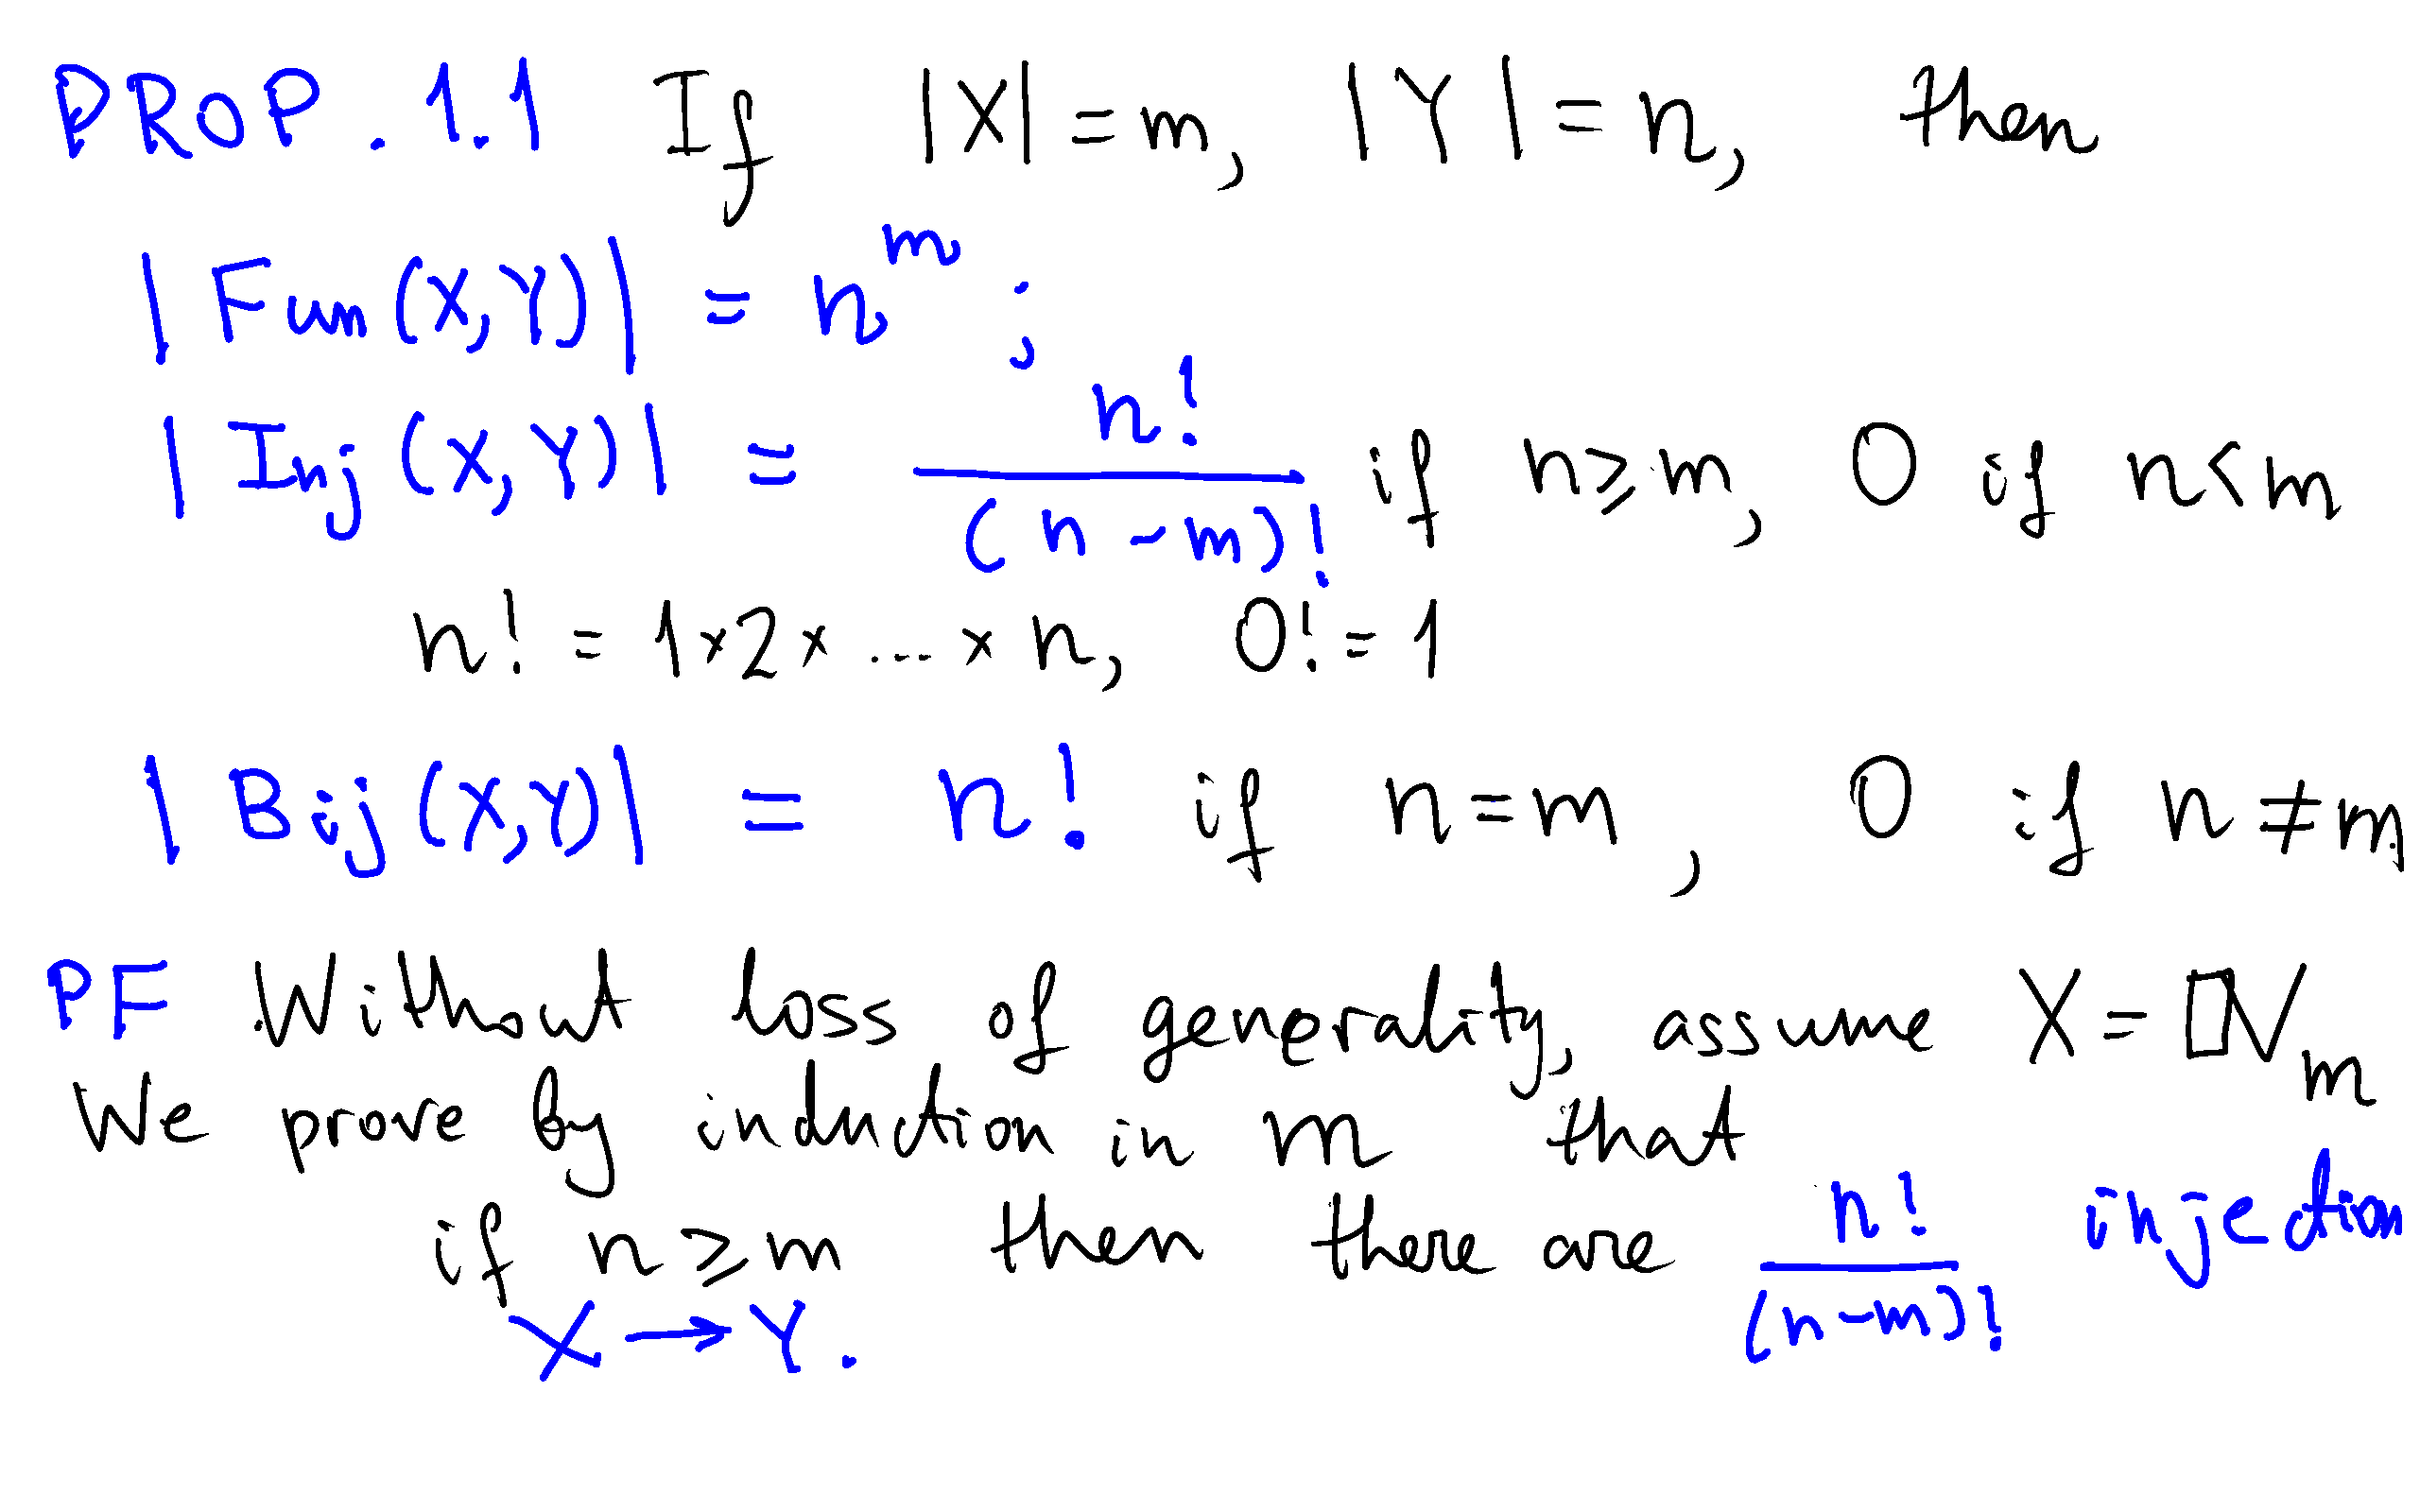 PROP. 1.1 If |X| = m, |Y| = n, then
|Fun(X,Y)| = n^m ;
|Inj(X,Y)| = n!/(n-m)! if n≥m, 0 if n<m
n! = 1×2×...×n, 0! = 1
|Bij(X,Y)| = n! if n=m, 0 if n≠m
PF Without loss of generality, assume X = ℕ_m
We prove by induction in m that
if n≥m then there are n!/(n-m)! injection
X → Y.